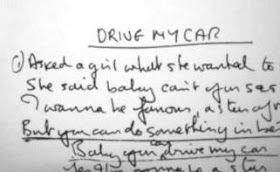 DRIVE MY CAR
① Asked a girl what she wanted to
She said baby can't you see
I wanna be famous, a star of
But you can do something in be
Baby you drive my car
gonna be a star